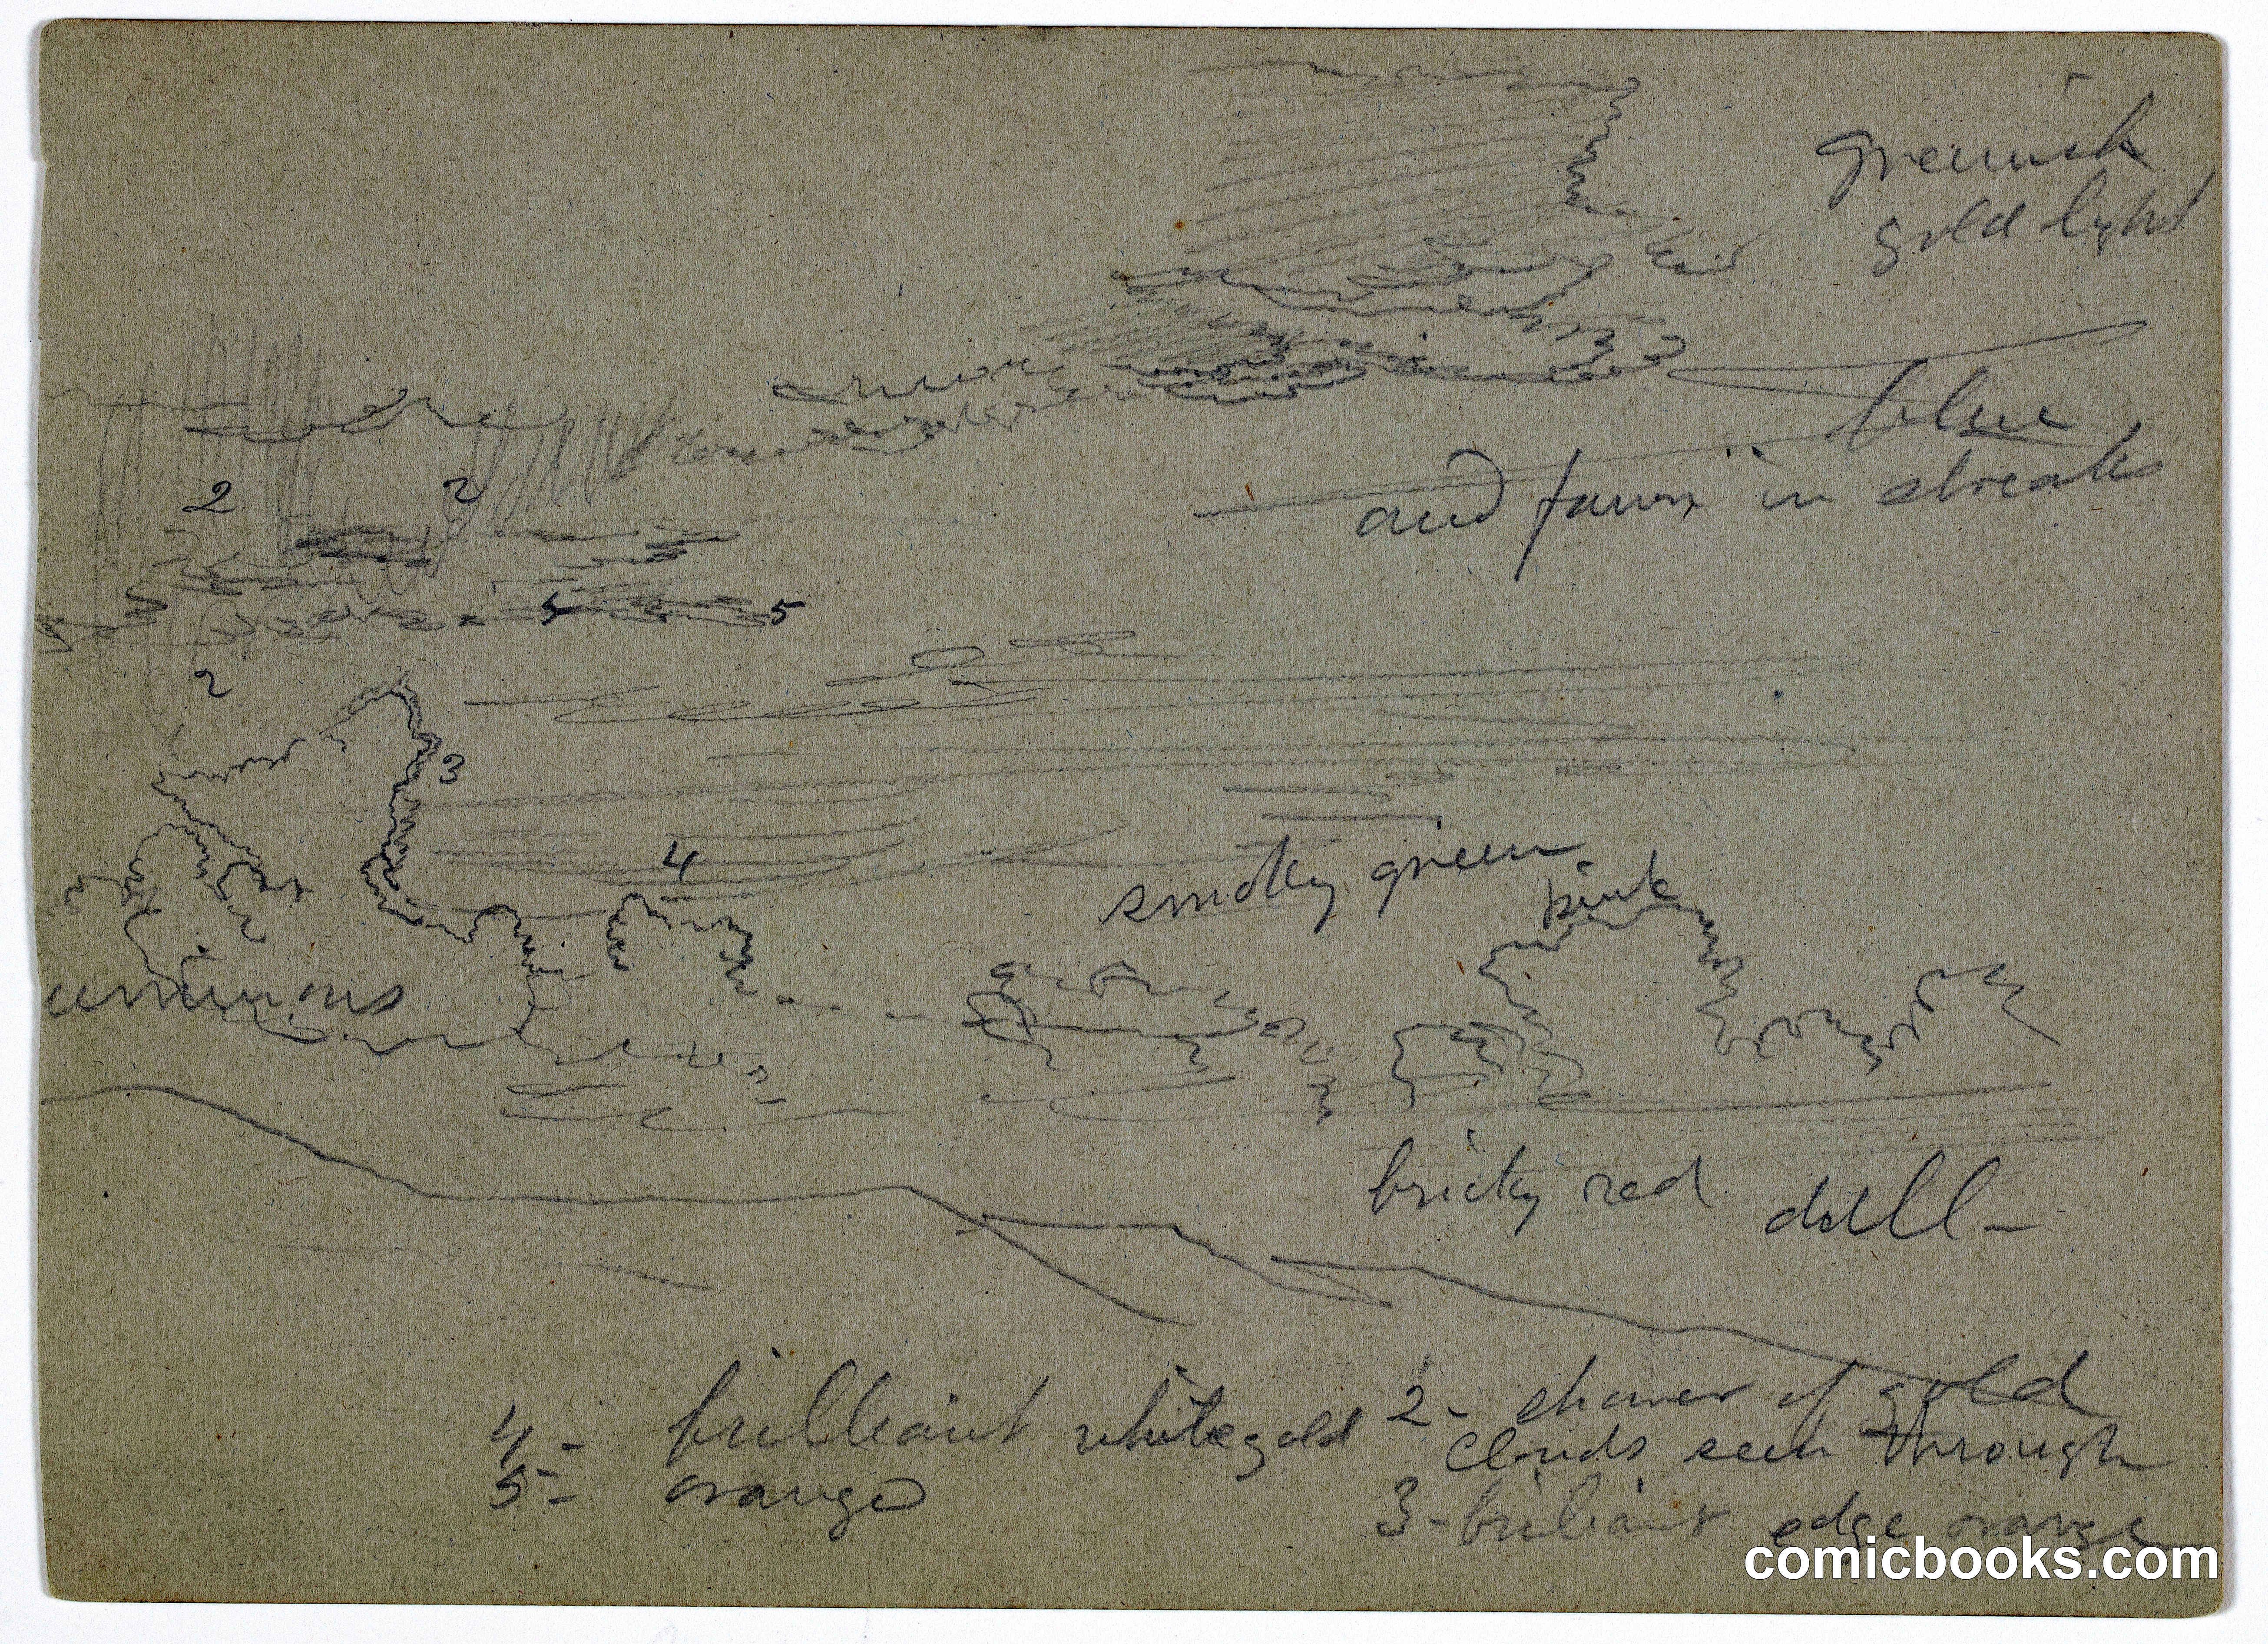 greenish
gold light
blue
and fawn in streaks
2 2
5 5
2
3
4
smoky green
pink
bricky red dull -
4 - brilliant white gold
5 - orange
2 - shower of gold
clouds seen through
3 - briliant edge orange
comicbooks.com